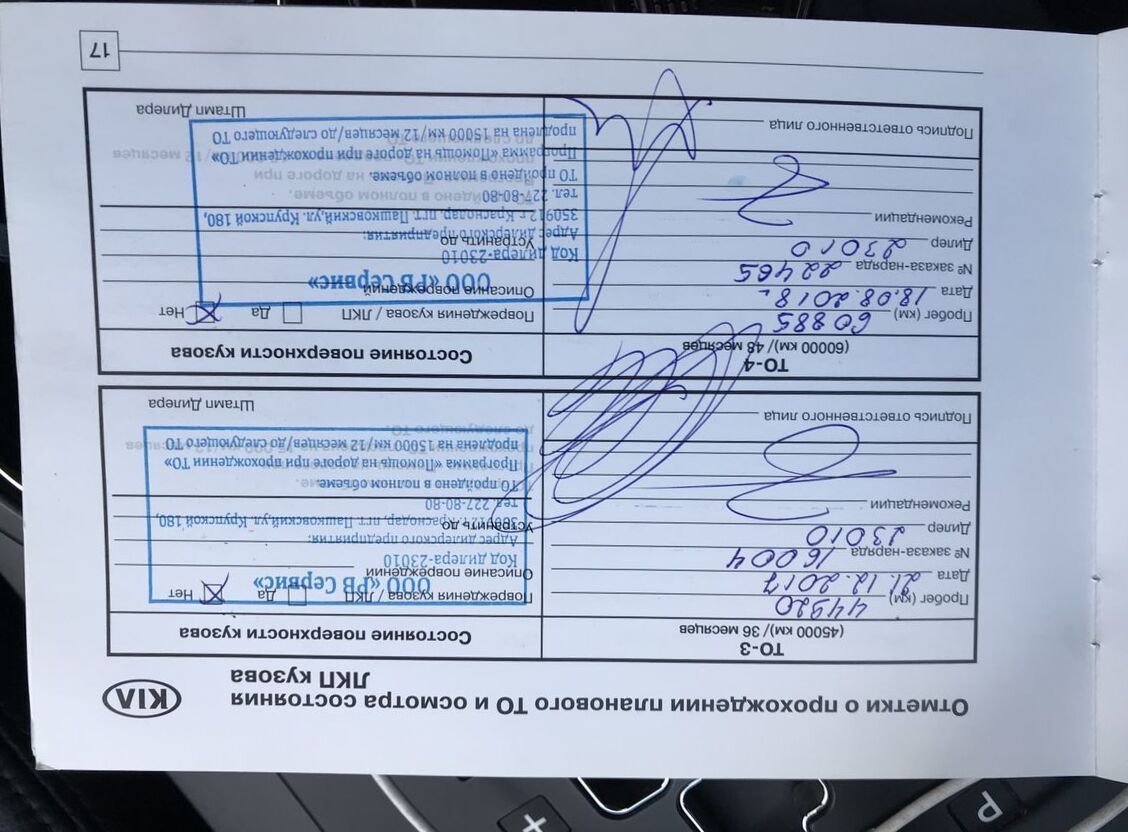 Отметки о прохождении планового ТО и осмотра состояния
ЛКП кузова
KIA
ТО-3
(45000 км)/ 36 месяцев
Пробег (км) 44920
Дата 21.12.2017
№ заказа-наряда 16004
Дилер 23010
Рекомендации
Подпись ответственного лица
Состояние поверхности кузова
Повреждения кузова / ЛКП Да Нет
Описание повреждений
Устранить до
ООО «РВ Сервис»
Код дилера-23010
Адрес дилерского предприятия:
350912 г. Краснодар, пгт. Пашковский, ул. Крупской 180,
тел. 227-80-80
ТО пройдено в полном объеме.
Программа «Помощь на дороге при прохождении ТО»
продлена на 15000 км/12 месяцев/до следующего ТО
Штамп Дилера
ТО-4
(60000 км)/ 48 месяцев
Пробег (км) 60885
Дата 18.08.2018
№ заказа-наряда 22465
Дилер 23010
Рекомендации
Подпись ответственного лица
Состояние поверхности кузова
Повреждения кузова / ЛКП Да Нет
Описание повреждений
Устранить до
ООО «РВ Сервис»
Код дилера-23010
Адрес дилерского предприятия:
350912 г Краснодар, пгт. Пашковский, ул. Крупской 180,
тел. 227-80-80
ТО пройдено в полном объеме.
Программа «Помощь на дороге при прохождении ТО»
продлена на 15000 км/12 месяцев/до следующего ТО
Штамп Дилера
17
P
+